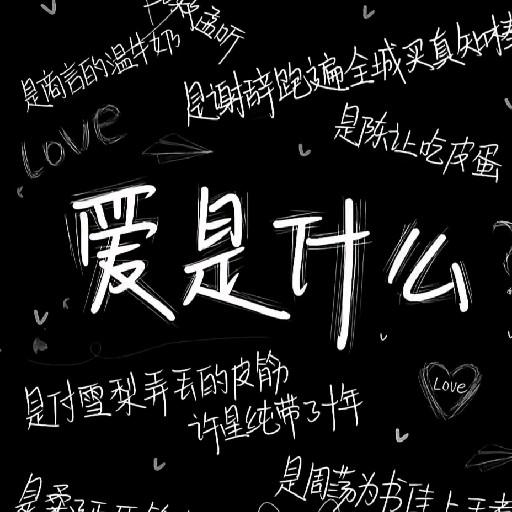 孟听
是商言的温牛奶
是谢辞跑遍全城买真知棒
LOVE
是陈让吃皮蛋
爱是什么
Love
是付雪梨弄丢的皮筋
许星纯带了十年
是周荡为书佳上王者
是桑